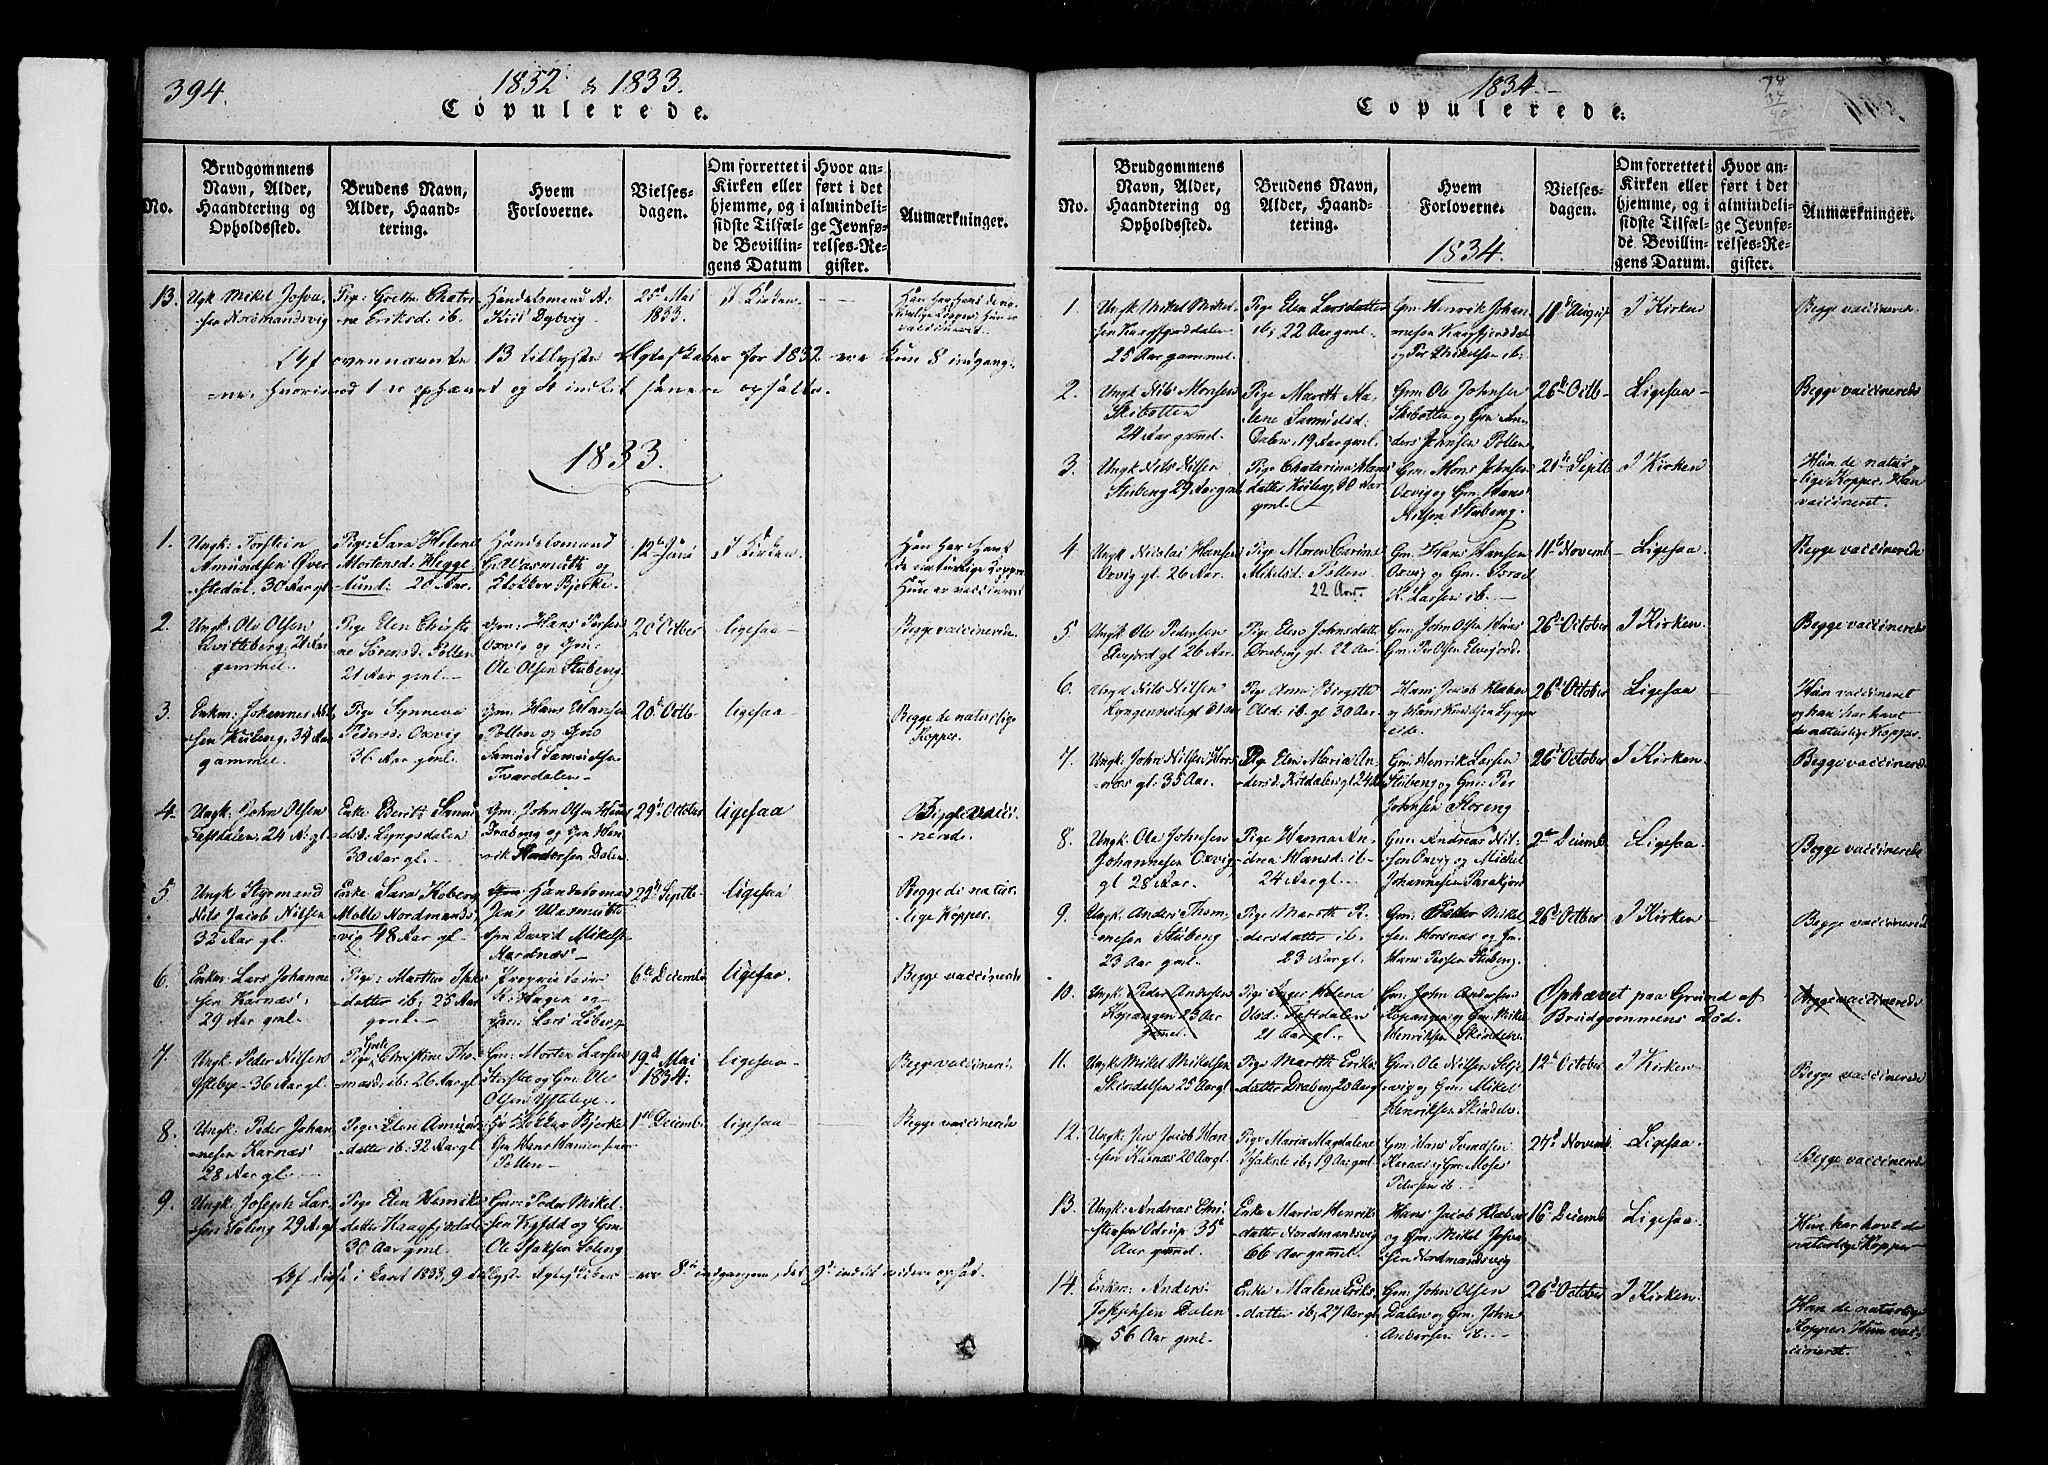 394.
1832 & 1833.
Copulerede.
No.
Brudgommens
Navn, Alder,
Haandtering og
Opholdssted.
Brudens Navn,
Alder, Haand-
tering.
Hvem
Forloverne.
Vielses-
dagen.
Om forrettet i
Kirken eller
hjemme, og i
sidste Tilfæl-
de Bevillin-
gens Datum
Hvor an-
ført i det
almindeli-
ge Jevnfø-
relses-Re-
gister.
Anmærkninger.
13.
Ungk. Mikel Josva-
sen Nordmandsvig
Pige: Grethe Chatri-
ne Eriksd: ib.
Handelsmand A:
Kiil Dybvig
25de Mai
1833.
I Kirken
Af ovennævnte 13 tillyste Ægteskaber for 1832 ere kun 8 indgang-
ne, hvorimod 1 er ophævet og 4 indtil senere opsatte.
1833.
1.
Ungk: Torstein
Amundsen Over-
stedal, 30 Aar gl
Pige: Sara Helene
Mortensd: Hegge-
lund: 20 Aar.
Handelsmand
Wasmuth og
Klokker Bjerke.
12te Juni
I Kirken
Han har havt
de naturlige Kopper
Hun er vaccineret
2.
Ungk: Ole Olsen
Qvitteberg, 21 Aar
gammel.
Pige Elen Christi-
ne Sørensd: Pollen
21 Aar gml.
Gm: Hans Persen
Oxvig og Gm:
Ole Olsen Stubeng
20 Octber
ligesaa
Begge vaccinerede
3.
Enkm: Johannes Nil-
sen Kuleng, 34 Aar
gammel.
Pige Synneva
Pedersd: Oxvig
36 Aar gml.
Gm: Hans Hansen
Pollen og Gm:
Samuel Samuelsen
20de Octb
ligesaa
Begge de naturlige
Kopper.
4.
Ungk: John Olsen
24 Ar. gl
Enke Berith Samu-
elsd: Lyngsdalen
30 Aar gl.
Gm: John Olsen
Drabeng og Gm Hen-
rik Andersen Dalen
29de October
ligesaa
Begge vacci-
nered.
5.
Ungk Styrmand
Nils Jacob Nilsen
32 Aar gl.
Enke: Sara Koberg
Molte Nordmands-
vig 48 Aar gl
Handelsman
Jens Wasmuth
Gm David Mikels
Aardnæs
ligesaa
Begge de natur-
lige Kopper.
6.
Enkm: Lars Johanne-
sen Karnæs,
29 Aar gml.
datter ib; 25 Aar
gml.
Proprietair
6te Decemb
ligesaa.
Begge vaccinerede
7.
Ungk: Peder Nilsen
Ysteby 36 Aar gl.
Pige: Grete Christine Tho-
masd: ib: 26 Aar gl
Gm: Morten Larsen
Storstei og Gm: Ole
Olsen Ysteby.
19d Mai
1834:
ligesaa
Begge vaccinered
8.
Ungk: Peder Johan-
nesen Karnæs
28 Aar gl.
Pige: Elen Amund-
datter ib: 32 Aar gl
Hr Klokker Bjerke
Pollen
1ste Decemb
ligesaa
Begge vaccinerede
9.
Ungk: Joseph Lar-
sen Soleng 29 Ar gl
Pige Elen Henriks-
datter Kaagfjorddal
30 Aar gml.
Gm: Peder Mikel-
sen og Gm
Ole Isaksen Soleng
Af disse i Aaret 1833, 9 tillyste Ægteskaber ere 8te indgangne, det 9de indtil videre opsat.
1834.
Copulerede.
No.
Brudgommens
Navn, Alder,
Haandtering og
Opholdssted.
Brudens Navn,
Alder, Haand-
tering.
Hvem
Forloverne.
1834.
Vielses-
dagen.
Om forrettet i
Kirken eller
hjemme, og i
sidste Tilfæl-
de Bevillin-
gens Datum.
Hvor an-
ført i det
almindeli-
ge Jevnfø-
relses-Re-
gister.
Anmærkninger.
1.
Ungk Mikel Mikel-
sen Kaagfjorddalen
25 Aar gammel.
Pige Elen Larsdatter
ib; 22 Aar gml.
Gm: Henrik Johan-
nesen Kaagfjorddal
og Per Mikelsen ib:
18de August
I Kirken
Begge vaccinerede
2.
Ungk Nils Monsen
Skibotten
24 Aar gmel.
Pige Mareth Ma-
lene Samuelsd:
Dalen, 19 Aar gml.
Gm: Ole Johnsen
Skibotten og Gm: An-
ders Johnsen Pollen
26d Octb
Ligesaa
Begge vaccinerede
3.
Ungk: Nils Nilsen
Stubeng 29 Aar gl
Pige Chatarina Hans-
datter Kuleng, 30 Aar
gml.
Gm: Mons Johnsen
Oxvig og Gm: Hans
Nilsen Stubeng.
21de Septb
I Kirken
Hun de natur-
lige Kopper, Han
vaccineret.
4
Ungk Nicolai Hansen
Oxvig gl. 26 Aar.
Pige Maren Carine
Mikelsd: Pollen
22 Aar.
Gm: Hans Hansen
Oxvig og Gm: Israel
K. Larsen ib.
11te Novemb
Ligesaa
Begge vaccinerede
5
Ungk Ole Pedersen
Elvejord gl 26 Aar.
Pige Elen Johnsdatt.
Drabeng gl. 22 Aar.
Gm: John Olsen
Gm: Per Olsen Elvejord
26de October
I Kirken
Begge vaccinerede
6
Ungk Nils Nilsen
Lyngenseid gl 31 Aar
Pige Anna Birgitte
Olsd: ib. gl 30 Aar
Hans Jacob Klæboe
og Hans Knudsen Lyngen-
eide
26de October
Ligesaa
Hun vaccineret
og han har havt
de naturlige Kopper
7.
Ungk: John Nilsen Hors-
næs gl: 35 Aar.
Pig Elen Maria An-
dersd. Kitdalen gl 24 Aar
Gm: Henrik Larsen
Stubeng og Gm: Per
Johnsen Storeng
26de October
I Kirken
Begge vaccinerede
8.
Ungk: Ole Johnsen
Johannesen Oxvig
gl 28 Aar.
Pige Hanna An-
drea Hansd: ib
24 Aar gl.
Gm: Andreas Nil-
sen Oxvig og Mikel
Johannesen
2den Decemb
Ligesaa
Begge vaccinerede
9.
Ungk: Anders Thom-
mesen Stubeng
23 Aar gml.
Pige Mareth Pe-
dersdatter ib.
23 Aar gl.
Gm: Peder Mikel-
sen Horsnæs og Gm:
Hans Persen Stubeng.
26d Octber
I Kirken
Begge vaccinerede
10.
Ungk Peder Andersen
Kopangen 23 Aar
gammel.
Pige Inger Helena
Olsd:
21 Aar gl.
Gm: John Andersen
Kopangen og Gm: Mikel
Henriksen Skindelv.
Ophævet paa Grund af
Brudgommens Død.
Begge vaccinerede
11.
Ungk Mikel Mikelsen
Skindelven 25 Aar gl.
Pige Mareth Eriks-
datter Drabeng 20 Aar gl
Gm: Ole Nilsen
vig og Gm: Mikel
Henriksen Skindelv.
12te October
I Kirken
Begge vaccinerede
12.
Ungk: Jens Jacob Han-
sen Karnæs 20 Aar gl
Pige Maria Magdalene
Isaksdt: ib, 19 Aar gml
Gm: Hans Svendsen
Karnæs og Gm: Moses
Petersen ib.
27de Novemb.
Ligesaa
Begge vaccinerede
13.
Ungk: Andreas Chri-
stensen Odrup 35
Aar gammel.
Enke Maria Henriks-
datter Nordmandsvig
66 Aar gammel.
Hans Jacob Klæboe
og Gm: Mikel Josva-
sen Nordmandsvig
16de Decemb
Ligesaa
Hun har havt de
naturlige Kopper
14.
Enkm: Anders
Josephsen Dalen
56 Aar gml.
Enke Malene Eriks-
datter ib, 27 Aar gl
Gm: John Olsen
Dalen og Gm: John
Andersen ib.
26de October
I Kirken
Han de naturlige
Kopper. Hun vac-
cineret.